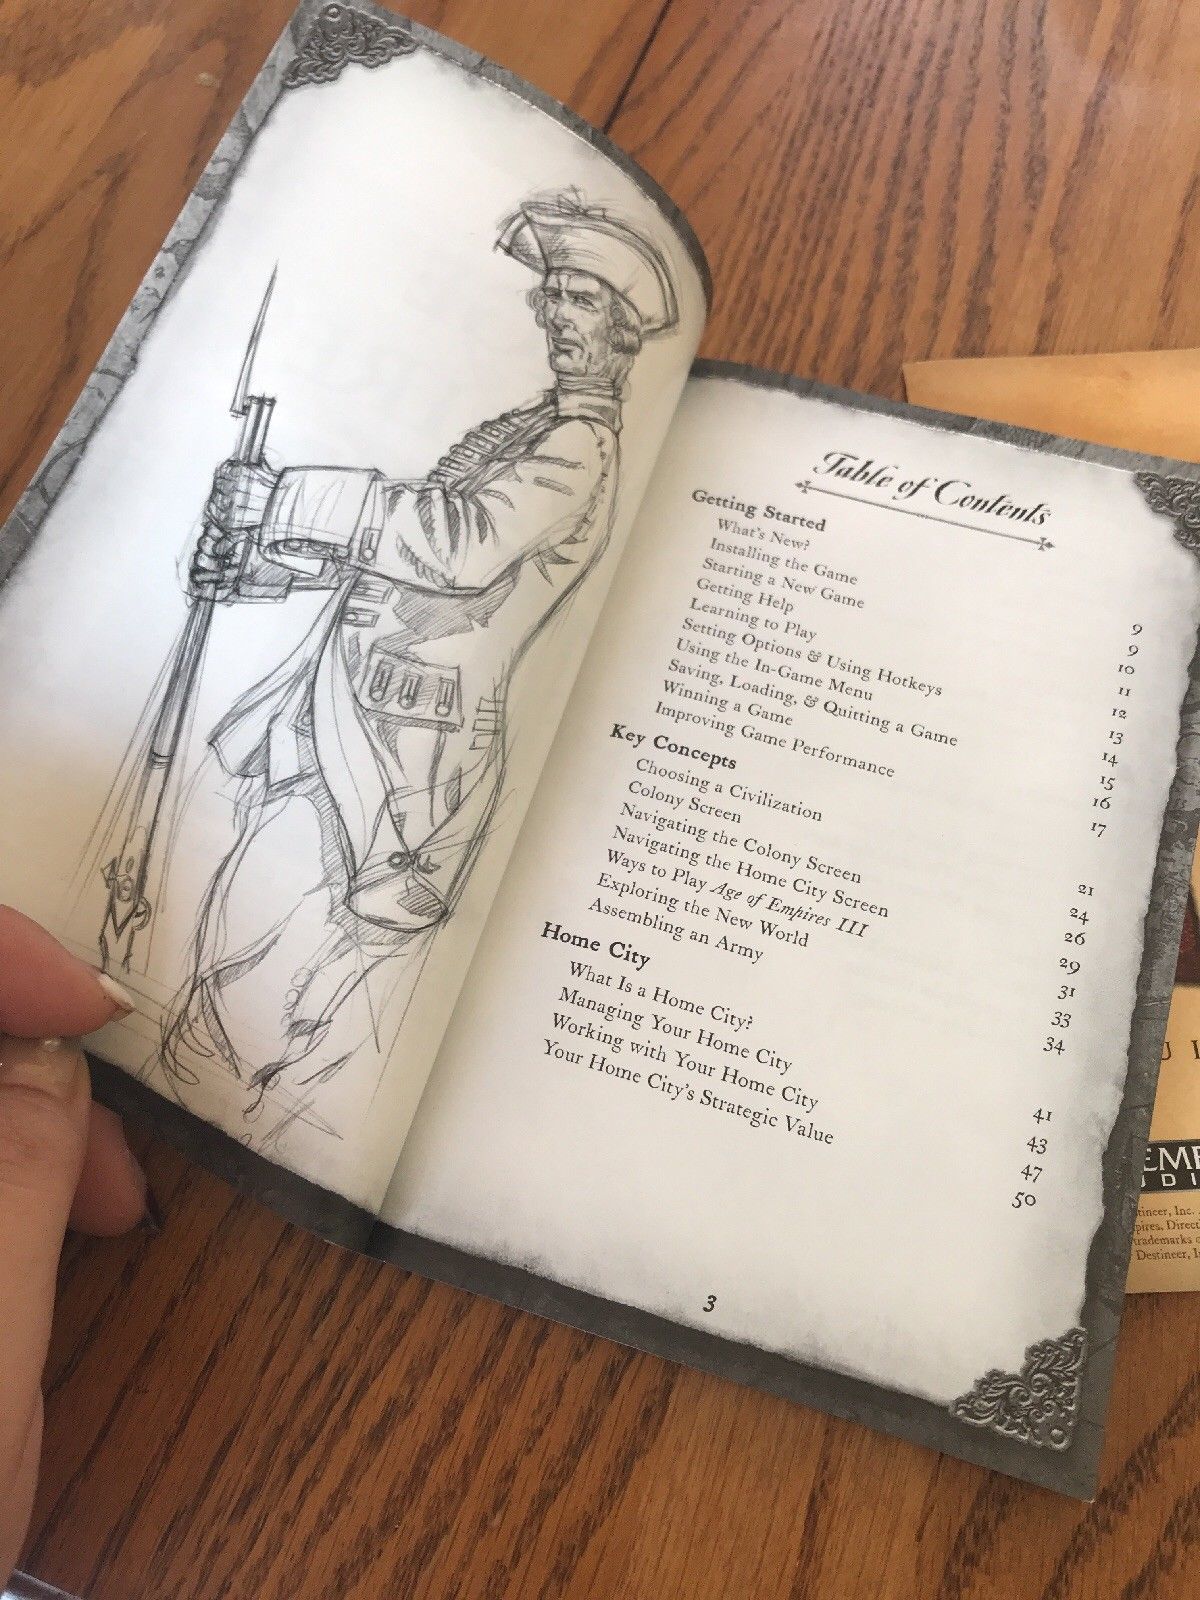 Table of Contents
Getting Started
What's New? 9
Installing the Game 9
Starting a New Game 10
Getting Help 11
Learning to Play 12
Setting Options & Using Hotkeys 13
Using the In-Game Menu 14
Saving, Loading, & Quitting a Game 15
Winning a Game 16
Improving Game Performance 17
Key Concepts
Choosing a Civilization 21
Colony Screen 24
Navigating the Colony Screen 26
Navigating the Home City Screen 29
Ways to Play Age of Empires III 31
Exploring the New World 33
Assembling an Army 34
Home City
What Is a Home City? 41
Managing Your Home City 43
Working with Your Home City 47
Your Home City's Strategic Value 50
3
Inc.
trademarks
Destineer,